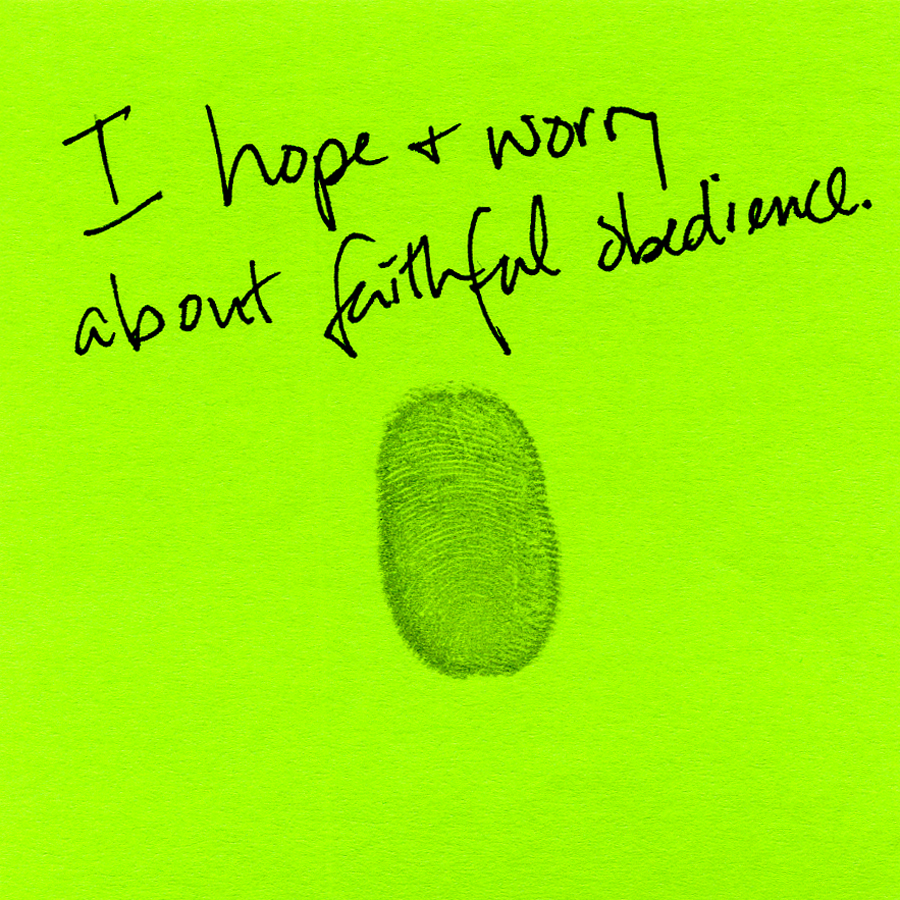 I hope + worry
about faithful obedience.